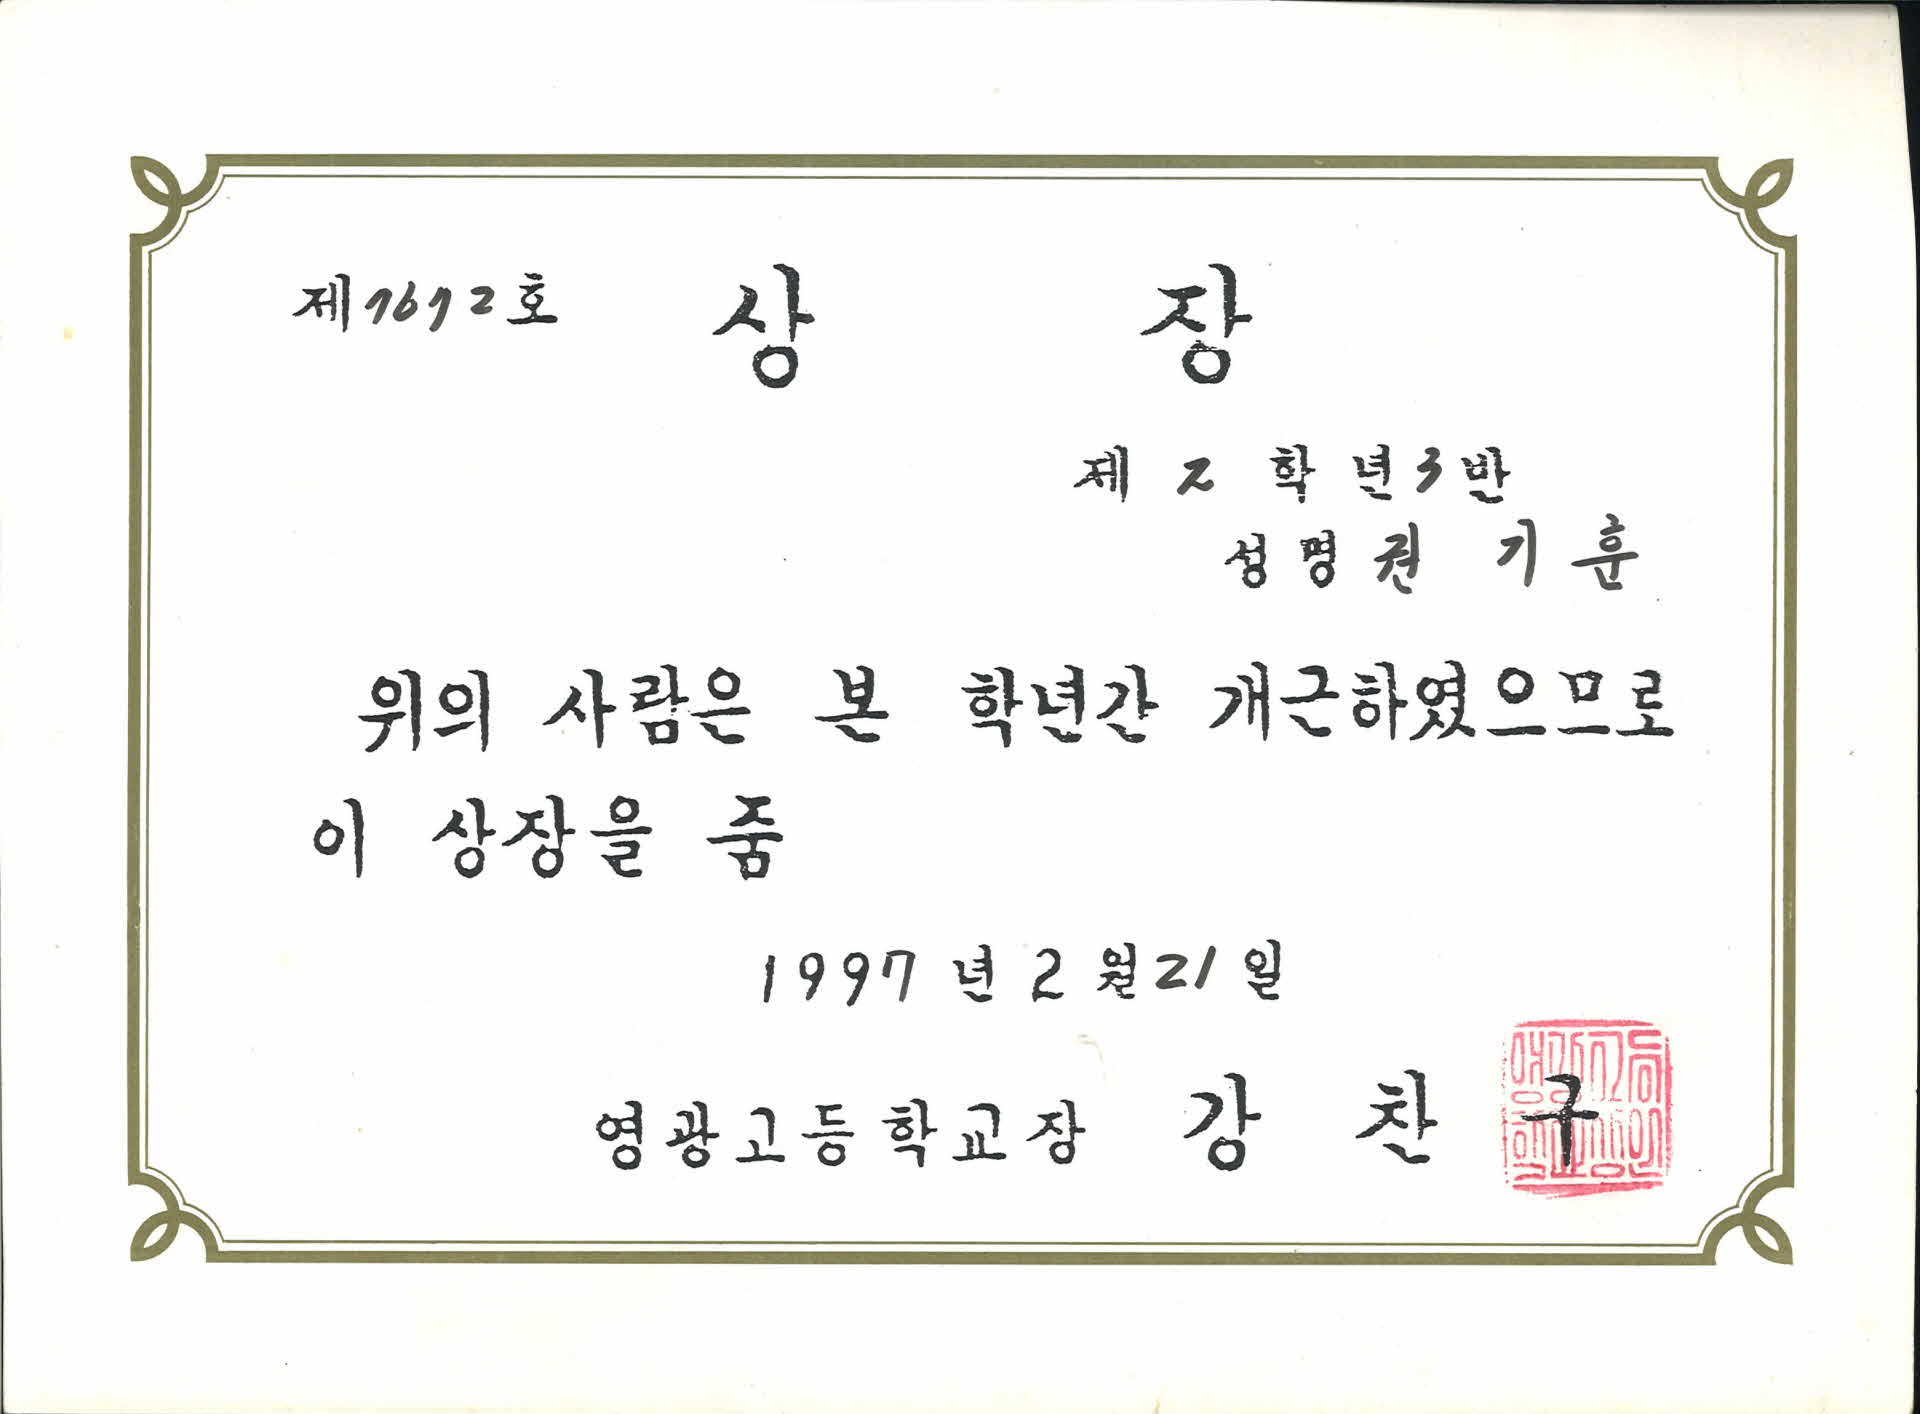 제1612호 상 장
제 2 학 년 3 반
성 명 권 기 훈
위의 사람은 본 학년간 개근하였으므로
이 상장을 줌
1997 년 2 월 21 일
영광고등학교장 강 찬 구
영광고등학교장인